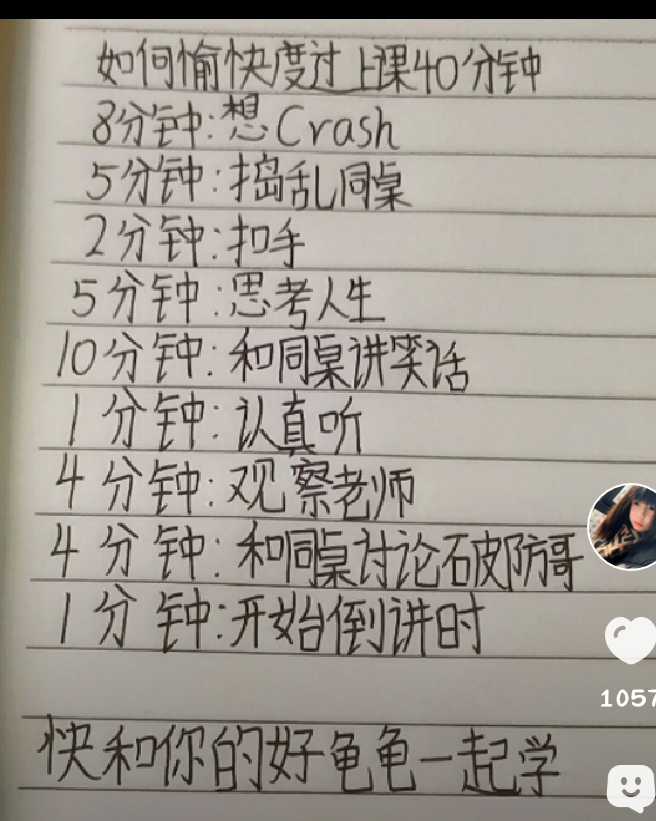 如何愉快度过上课40分钟
8分钟:想Crash
5分钟:捣乱同桌
2分钟:扣手
5分钟:思考人生
10分钟:和同桌讲笑话
1分钟:认真听
4分钟:观察老师
4分钟:和同桌讨论破防哥
1分钟:开始倒讲时
1057
快和你的好龟龟一起学